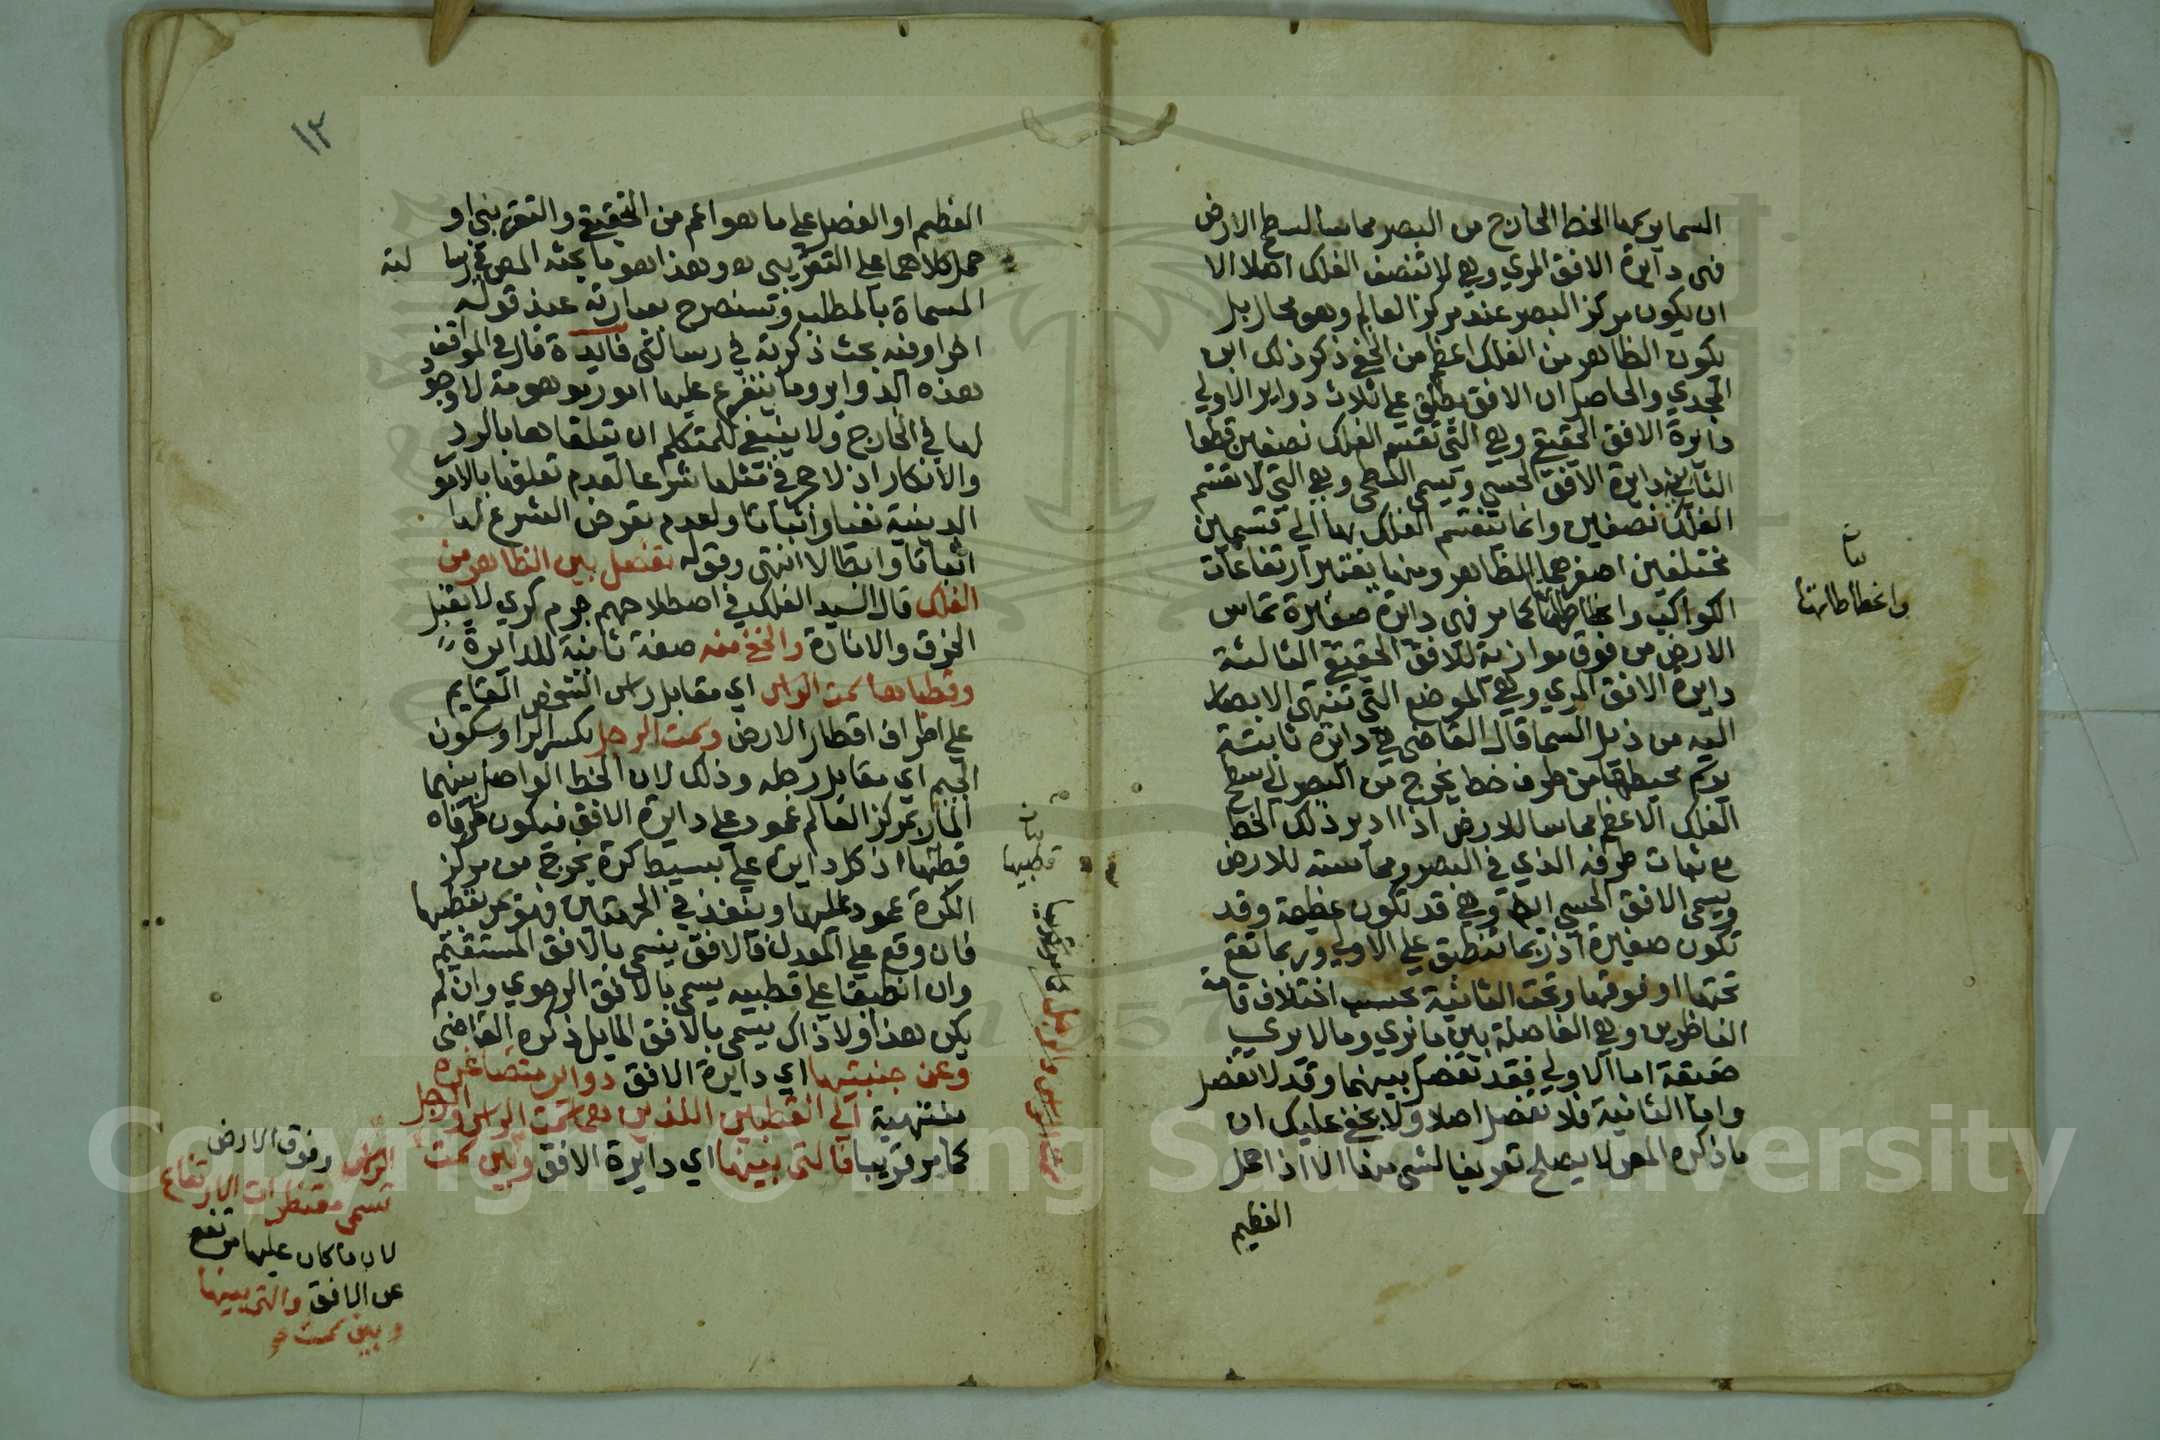 السما يرسمها الخط الخارج من البصر مماسا لسطح الارض
فهى دآيرة الافق المرى وهى لا تنصف الفلك اصلا الا
ان يكون مركز البصر عند مركز العالم وهو محال بل
يكون الظاهر من الفلك اعظم من الخفى ذكر ذلك ابن
المجدي والحاصل ان الافق يطلق على ثلاث دواير الاولى
دآيرة الافق الحقيقى وهى التى تقسم الفلك نصفين قطعا
الثانية دايرة الافق الحسي ويسمى السطحى وهى التى لا تقسم
الفلك نصفين وانما ينقسم الفلك بها الى قسمين
مختلفين اصغرهما الظاهر ومنها يعتبر ارتفاعات
الكواكب وانحطاطاتها كما مر فهى دائرة صغيرة تماس
الارض من فوق موازية للافق الحقيقى الثالثة
دايرة الافق المري وهى الموضع التى تنتهى الابصار
اليه من ذيل السما قال القاضى هى دائرة ثابتة
يرسم محيطها من طرف خط يخرج من البصر الى سطح
الفلك الاعظم مماسا للارض اذا ادير ذلك الخط
مع ثبات طرفه الذي في البصر ومماسته للارض
ويسمى الافق الحسي ايضا وهى قد تكون عظيمة وقد
تكون صغيرة اذ ربما تنطبق على الاولى وربما تقع
تحتها او فوقها وتحت الثانية بحسب اختلاف قامة
الناظرين وهى الفاصلة بين ما نري وما لا يري
حقيقة اما الاولى فقد تفصل بينهما وقد لا تفصل
واما الثانية فلا تفصل اصلا ولا يخفى عليك ان
ما ذكره المص لا يصلح تعريفا لشى منها الا اذا حمل
العظيم
بيان
وانحطاطاتها
١٣
العظيم او الفصل على ما هو اعم من التحقيقى والتقريبى او
حمل كلاهما على التقريبى وهذا هو ما بحثه المص في رسا لته
المسماة بالمطلب وتستصرح بعبارته عند قوله
اخرا وفيه بحث ذكرته في رسالتى فايدة قال في المواقف
هذه الدواير وما يتفرع عليها امور موهومة لا وجود
لها في الخارج ولا ينبغى للمتكلم ان يتلقاها بالرد
والانكار اذ لا حجر في مثلها شرعا لعدم تعلقها بالامور
الدينية نفيا واثباتا ولعدم تعرض الشرع لها
اثباتا وابطالا انتهى وقوله تفصل بين الظاهر من
الفلك قال السيد الفلك في اصطلاحهم جرم كري لا يقبل
الخرق والانارة والخفى منه صفة ثانية للدايرة
وقطباها سمت الراس اي مقابل راس الشخص القايم
على اطراف اقطار الارض وسمت الرجل بكسر الرا وسكون
الجيم اي مقابل رجله وذلك لان الخط الواصل بينهما
المار بمركز العالم عمود على دايرة الافق فيكون طرفاه
قطبيها اذ كل دايرة على بسيط كرة يخرج من مركز
الكرة عمود عليها وينفذ في الجهتين فهو يمر بقطبيها
فان وقع على المعدل فالافق يسمى بالافق المستقيم
وان انطبقا على قطبيه يسمى بالافق الرحوي وان لم
يكن هذا ولا ذاك يسمى بالافق المايل ذكره القاضى
وعن جنبتيها اي دايرة الافق دواير متصاغرة
منتهية الى القطبين اللذين هما سمت الراس والرجل
كما مر قريبا فالتى بينها اي دايرة الافق وبين سمت
الراس وفوق الارض
تسمى مقنطرات الارتفاع
لان ما كان عليها مرتفع
عن الافق والتى بينها
وبين سمت
بيان
قطبيها